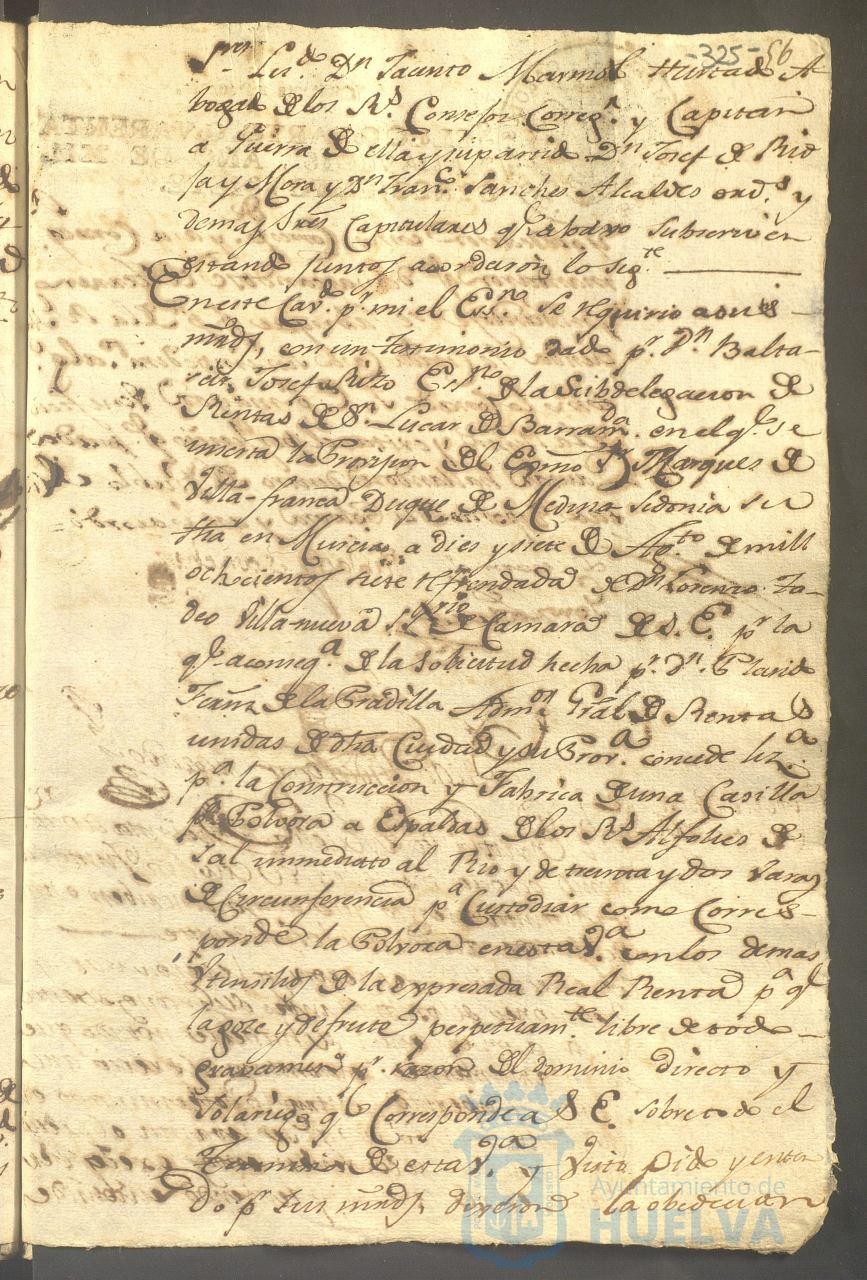 -325- 56
Sres Licdo. Dn Jacinto Marmol Hurtado A-
bogado de los Rs. Consejos Corregr. y Capitan
a Guerra de ella y su partido Dn Josef de Rio-
ja y Mora y Dn Franco. Sanches Alcaldes ords. y
demas Sres Capitulares qe. abaxo subscriven
estando juntos acordaron lo sigte.
En este Cavdo. pr. mi el Essno. se requirio a sus
mrds, con un testimonio dado pr. Dn. Balta-
sar Josef Rizo Esno de la Subdelegacion de
Rentas de Sn Lucar de Barrama. en el qe. se
inserta la Provision del Exmo Sr Marques de
Villa-franca Duque de Medina Sidonia su
fha en Murcia a dies y siete de Agto. de mill
ochocientos siete refrendada de Dn Lorenzo Ta-
deo Villa-nueva Srio de Camara de S. E. pr la
qe. a consega. de la solicitud hecha pr. Dn. Placido
Fernz de la Pradilla Admor. Gral de Rentas
unidas de dha Ciudad y su Prova. concede liza.
pa. la Construccion y Fabrica de una Casilla
Polvora a Espaldas de los Rs Alfolies de
Sal immediatto al Rio y de treinta y dos varas
de Circunferencia pa Custodiar como Corres-
ponde la Polvora en esta Va. con los demas
Utensilios de la expresada Real Renta pa qe
la goze y desfrute perpetuamte. libre de todo
gravamen pr. razon del dominio directo y
Solariego qe Corresponde a S E. sobre todo el
Termino de esta Va. y Visto oido y enten
do pr sus mrds. dixeron la obedecian
Ayuntamiento de
HUELVA